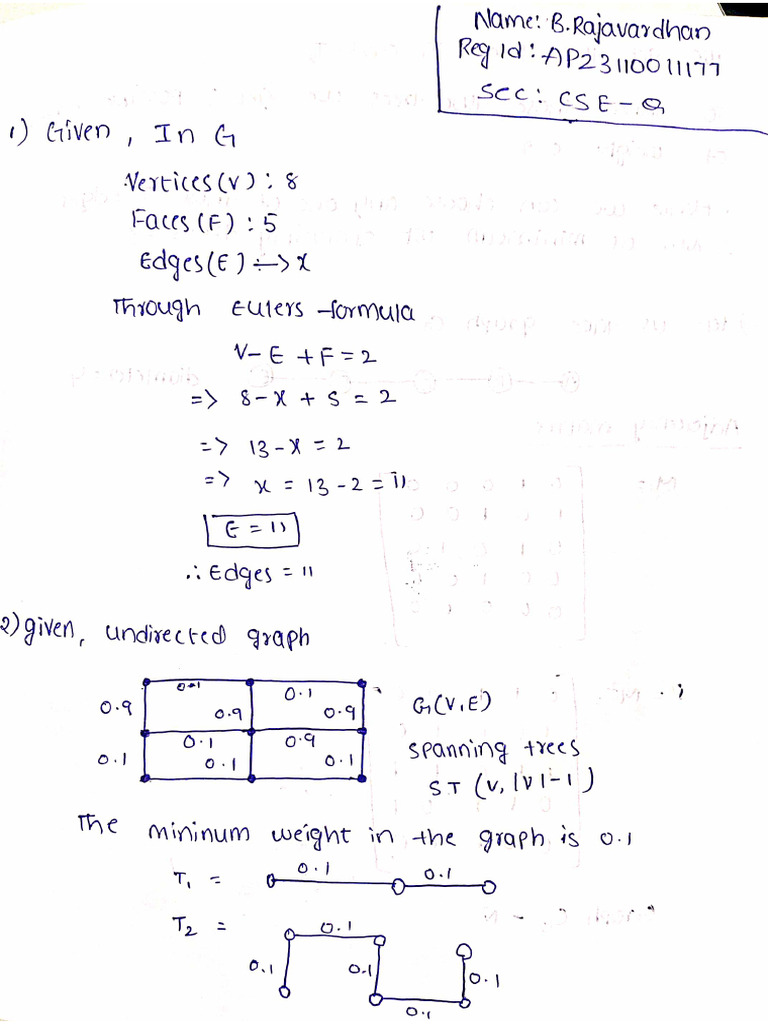 Name: B.Rajavardhan
Reg Id: AP23110011177
Sec: CSE-Q
1) Given, In G
Vertices(V): 8
Faces(F): 5
Edges(E) :-> x
Through Eulers formula
V- E +F=2
=> 8-x + 5 = 2
=> 13-x = 2
=> x = 13-2 = 11
E = 11
∴ Edges = 11
2) given, undirected graph
0.1 0.1
0.9 0.9 0.9 G(V,E)
0.1 0.9 spanning trees
0.1 0.1 0.1
ST (V, |V|-1)
The mininum weight in the graph is 0.1
T₁ = 0.1 0.1
T₂ = 0.1
0.1 0.1 0.1
0.1